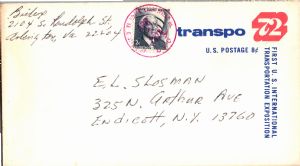 2124 S. Randolph St.
Arlington, Va 22204
transpo 72
U.S. POSTAGE 8¢
FIRST U.S. INTERNATIONAL
TRANSPORTATION EXPOSITION
E.L. Slosman
325 N. Arthur Ave
Endicott, N.Y. 13760